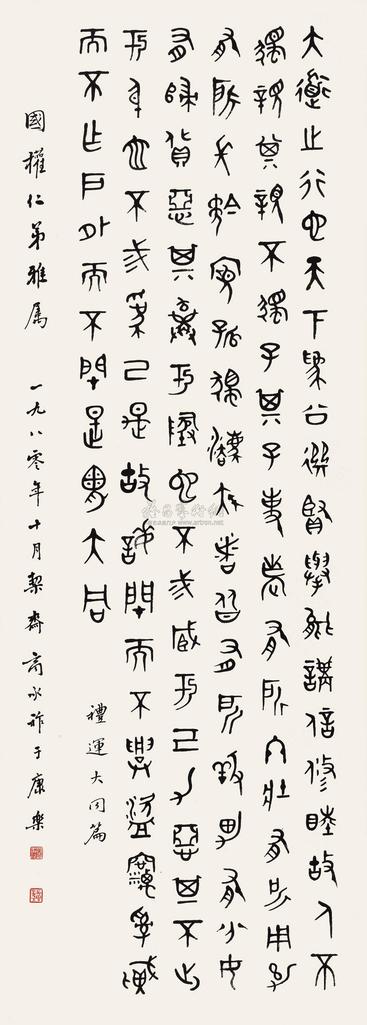 大道之行也天下為公選賢與能講信修睦故人不
獨親其親不獨子其子使老有所終壯有所用幼
有所長矜寡孤獨廢疾者皆有所養男有分女
有歸貨惡其棄於地也不必藏於己力惡其不出
於身也不必為己是故謀閉而不興盜竊亂賊
而不作戶外而不閉是謂大同
禮運大同篇
國權仁弟雅屬 一九八零年十月契齋商承祚于康樂